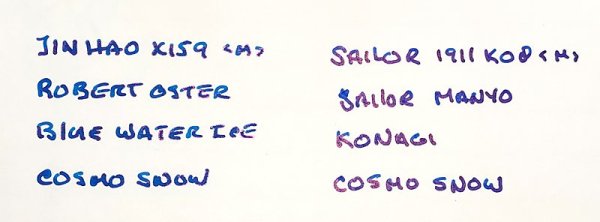 JINHAO X159 <M>
ROBERT OSTER
BLUE WATER ICE
COSMO SNOW
SAILOR 1911 KOP <M>
SAILOR MANYO
KONAGI
COSMO SNOW